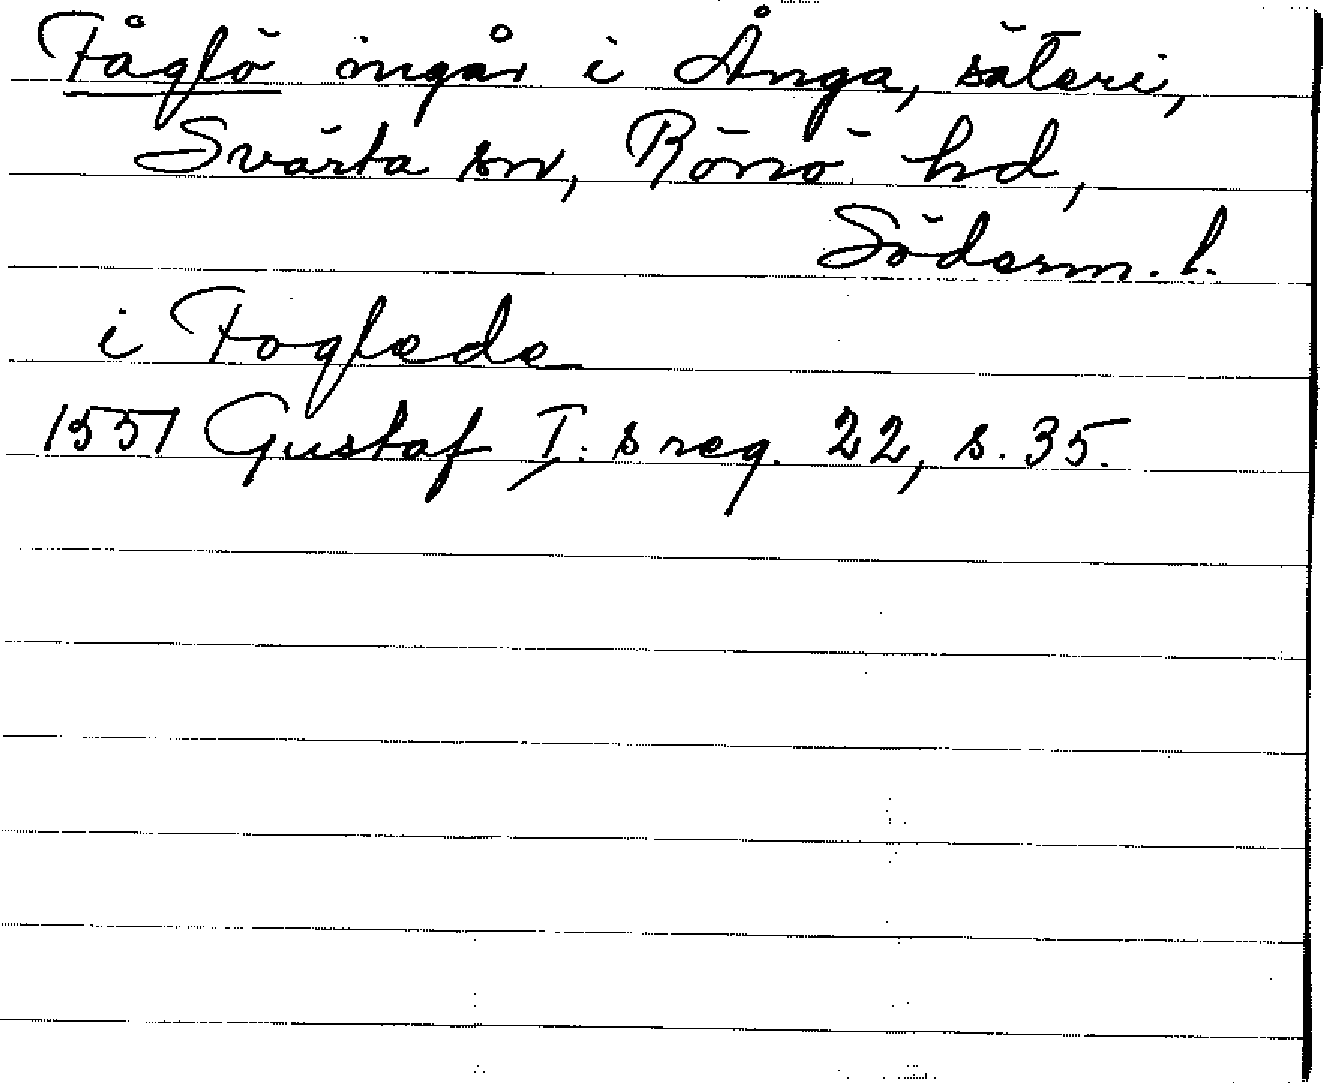 Fåglö ingår i Ånga, säteri,
Svärta sn, Rönö hd,
Söderm. l.
i Foglede
1551 Gustaf I:s reg. 22, s. 35.